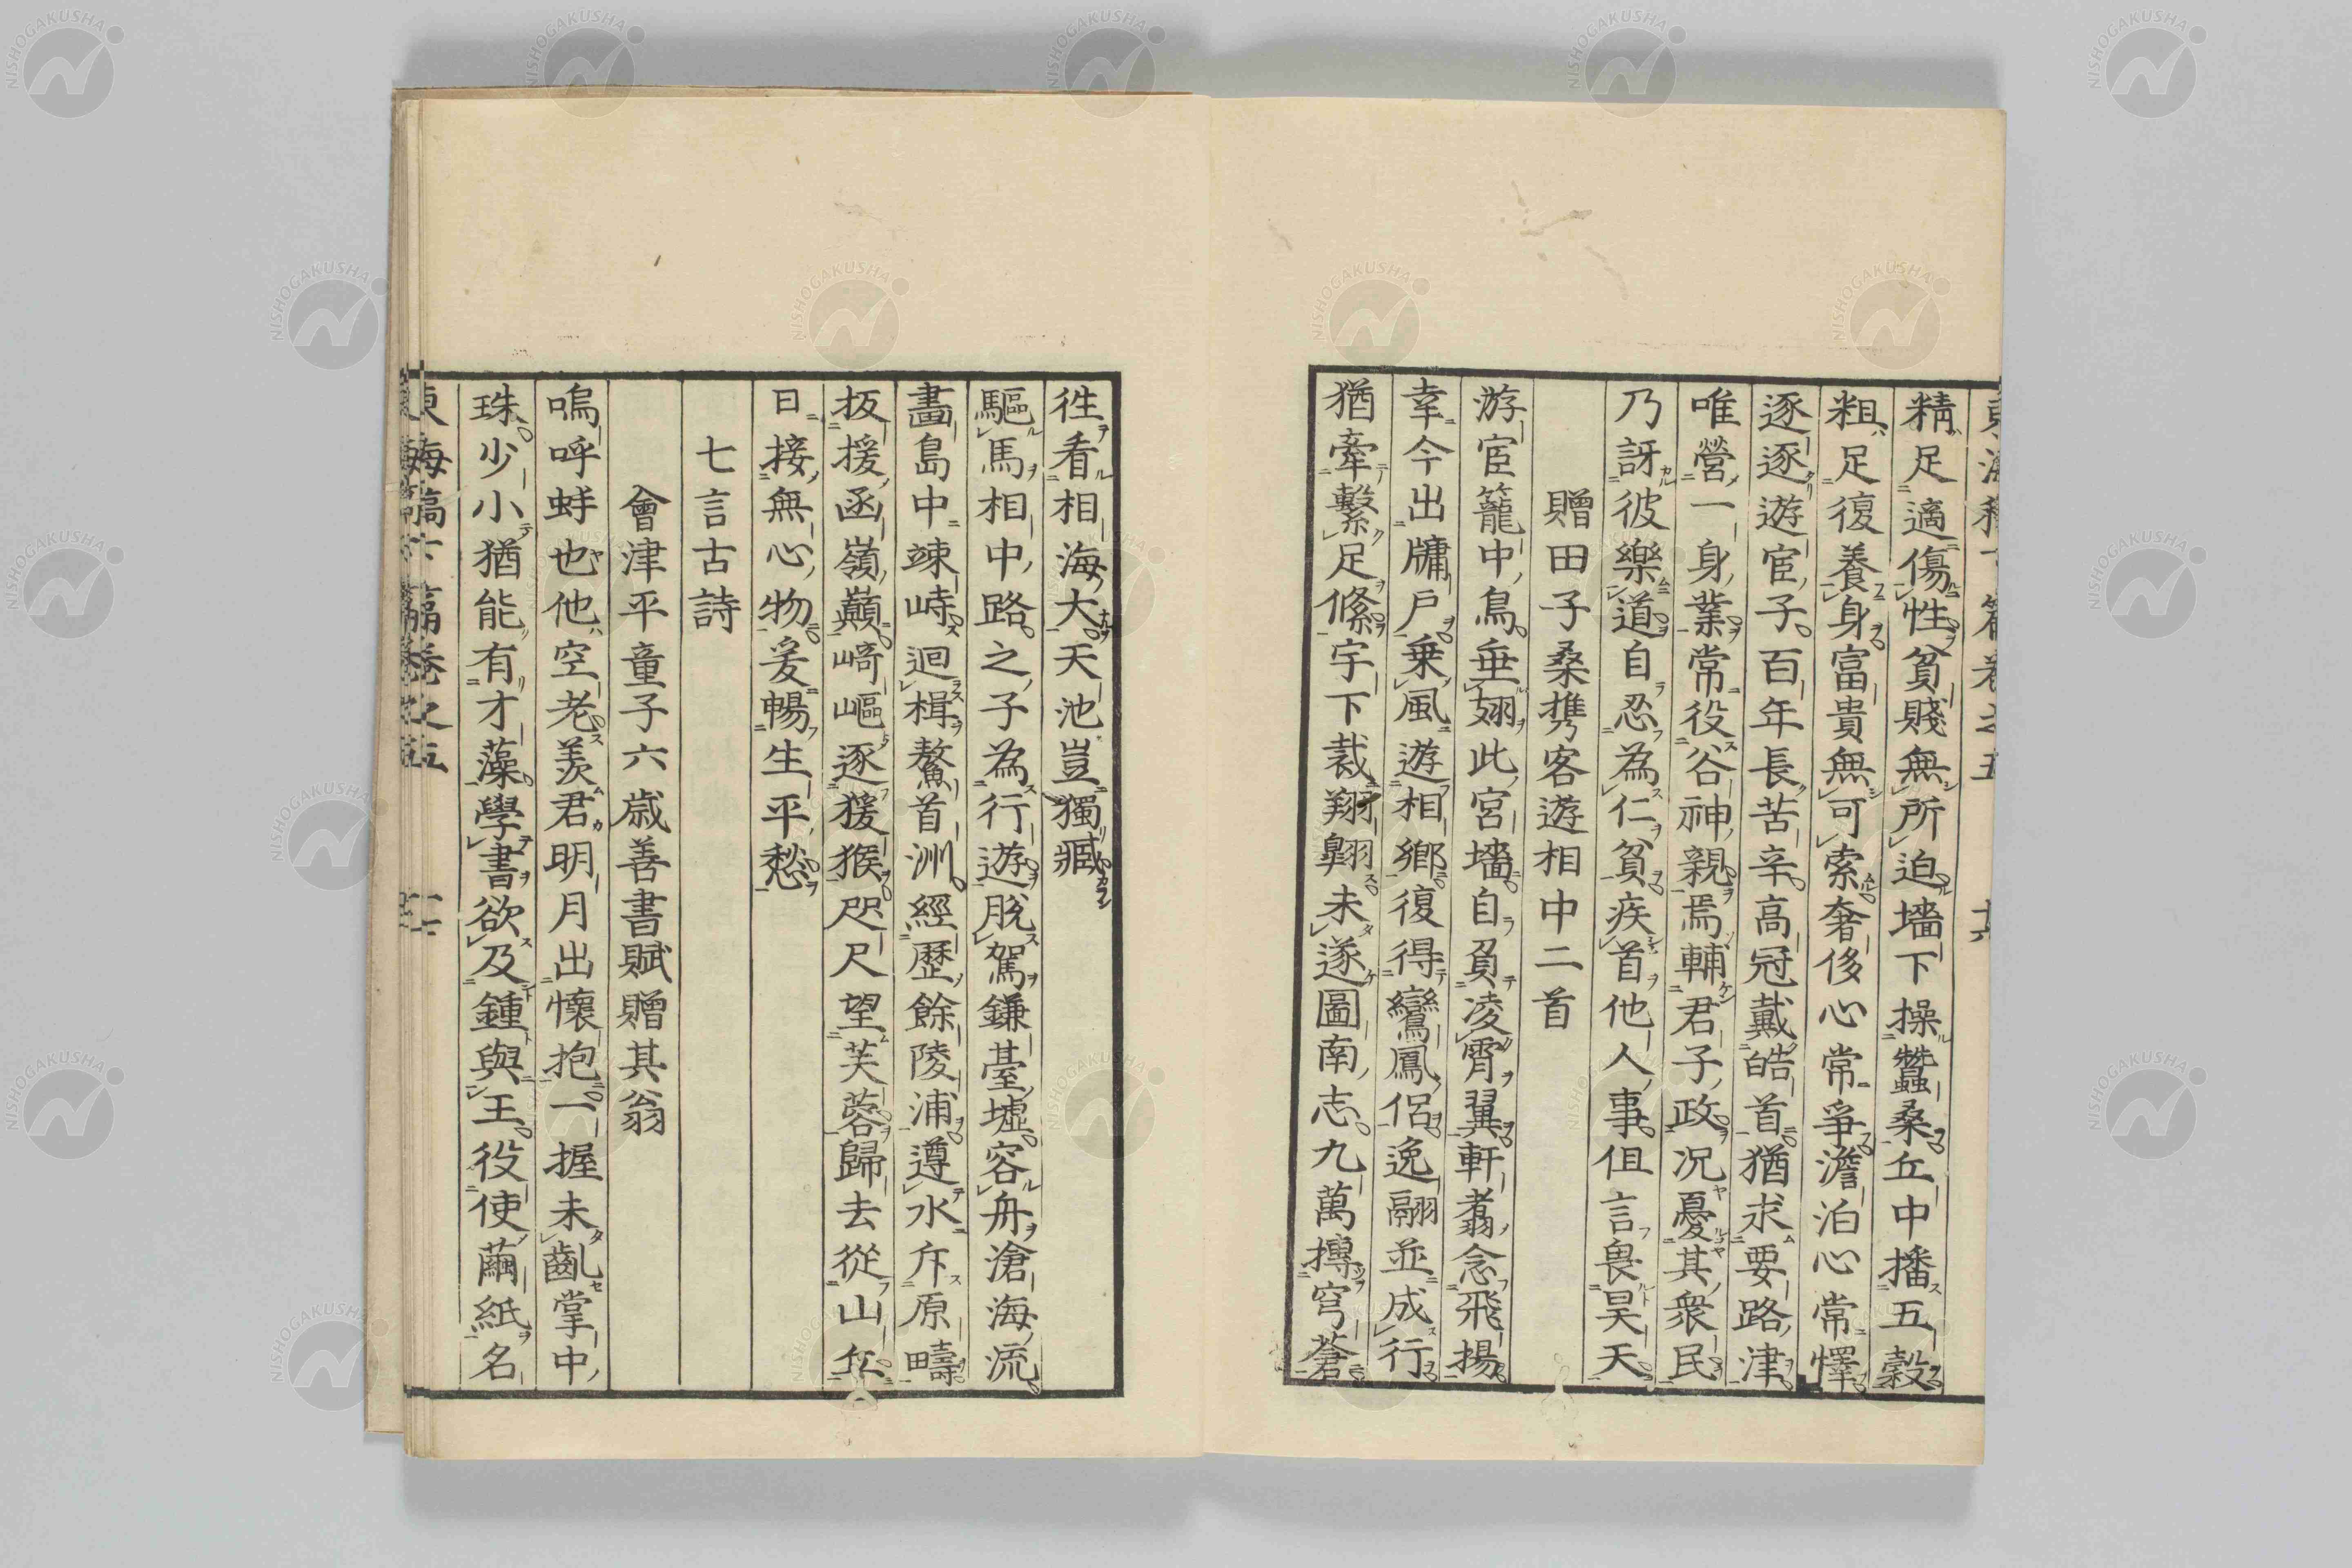 精足適傷性貧賤無所迫墻下操蠶桑丘中播五穀
粗足復養身富貴無可索奢侈心常爭澹泊心常懌
逐逐遊宦子百年長苦辛高冠戴皓首猶求要路津
唯營一身業常役谷神親焉輔君子政况憂其衆民
乃訝彼樂道自忍為仁貧疾首他人事徂言畏昊天
贈田子桑携客遊相中二首
游宦籠中鳥垂翅此宮墻自負凌霄翼軒翥念飛揚
幸今出牗戶乗風遊相鄉復得鸞鳳侶逸翮並成行
猶牽繫足絛宇下裁翔翺未遂圖南志九萬摶穹蒼
徃看相海大天池豈獨臧
驅馬相中路之子為行遊脫駕鎌臺墟容舟滄海流
畫島中竦峙迴楫鰲首洲經歷餘陵浦遵水斥原疇
扳援函嶺巔崎嶇逐猨猴咫尺望芙蓉歸去從山丘
日接無心物爰暢生平愁
七言古詩
會津平童子六歲善書賦贈其翁
嗚呼蚌也他空老羨君明月出懷抱一握未亂掌中
珠少小猶能有才藻學書欲及鍾與王役使繭紙名
NISHOGAKUSHA